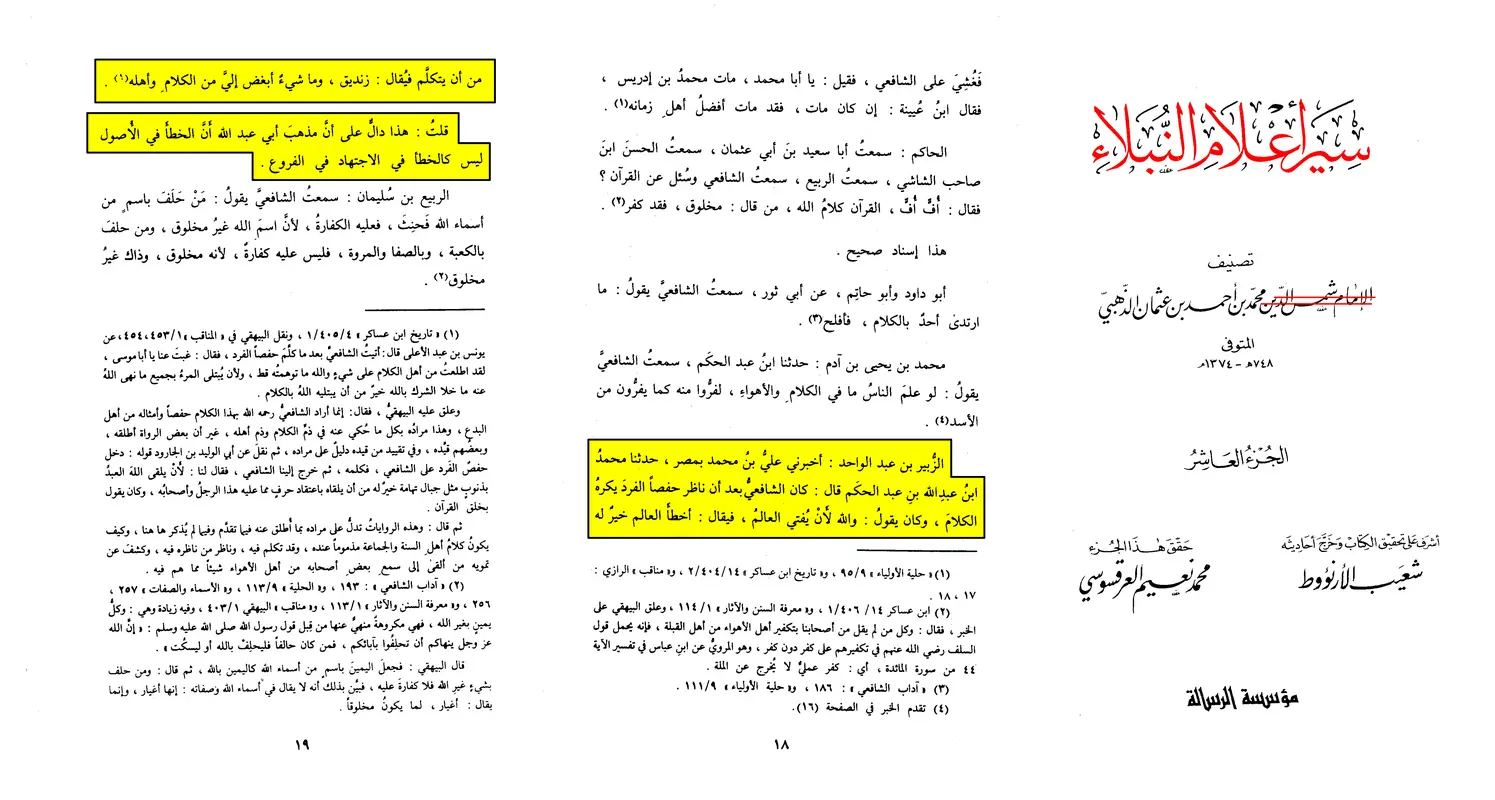 سير أعلام النبلاء
تصنيف
الإمام شمس الدين محمد بن أحمد بن عثمان الذهبي
المتوفى
٧٤٨هـ - ١٣٧٤م
الجزء العاشر
أشرف على تحقيق الكتاب وخرج أحاديثه
شعيب الأرنؤوط
حقق هذا الجزء
محمد نعيم العرقسوسي
مؤسسة الرسالة
فَغُشِيَ على الشافعي ، فقيل : يا أبا محمد ، مات محمدُ بن إدريس ،
فقال ابنُ عُيينة : إن كان مات ، فقد مات أفضلُ أهلِ زمانه(١) .
الحاكم : سمعتُ أبا سعيد بنَ أبي عثمان ، سمعتُ الحسنَ ابنَ
صاحب الشاشي ، سمعتُ الربيع ، سمعتُ الشافعي وسُئل عن القرآن ؟
فقال : أُفٍّ أُفٍّ ، القرآن كلامُ الله ، من قال : مخلوق ، فقد كفر(٢) .
هذا إسناد صحيح .
أبو داود وأبو حاتِم ، عن أبي ثور ، سمعتُ الشافعيَّ يقولُ : ما
ارتدىٰ أحدٌ بالكلام ، فأفلح(٣) .
محمد بن يحيى بن آدم : حدثنا ابنُ عبد الحكَم ، سمعتُ الشافعيَّ
يقولُ : لو علمَ الناسُ ما في الكلامِ والأهواءِ ، لفرُّوا منه كما يفرُّون من
الأسد(٤) .
الزُّبير بن عبد الواحد : أخبرني عليُّ بنُ محمد بمصر ، حدثنا محمدُ
ابنُ عبدِالله بنِ عبد الحكَم قال : كان الشافعيُّ بعد أن ناظر حفصاً الفردَ يكرهُ
الكلامَ ، وكان يقولُ : والله لَأنْ يُفتي العالمُ ، فيقال : أخطأ العالم خيرٌ له
(١) « حلية الأولياء » ٩٥/٩ ، و« تاريخ ابن عساكر » ٢/٤٠٤/١٤ ، و« مناقب » الرازي :
١٧ ، ١٨ .
(٢) ابن عساكر ١٤ /١/٤٠٦ ، و« معرفة السنن والآثار » ١١٤/١ ، وعلق البيهقي على
الخبر ، فقال : وكل من لم يقل من أصحابنا بتكفير أهل الأهواء من أهل القبلة ، فإنه يحمل قول
السلف رضي الله عنهم في تكفيرهم على كفر دون كفر ، وهو المرويُّ عن ابنِ عباس في تفسير الآية
٤٤ من سورة المائدة ، أي : كفر عمليٌّ لا يُخرج عن الملة .
(٣) « آداب الشافعي » : ١٨٦ ، و« حلية الأولياء » ١١١/٩ .
(٤) تقدم الخبر في الصفحة (١٦).
١٨
من أن يتكلَّم فيُقال : زنديق ، وما شيءٌ أبغض إليَّ من الكلامِ وأهله(١) .
قلتُ : هذا دالٌّ على أنَّ مذهبَ أبي عبد الله أنَّ الخطأ في الأصول
ليس كالخطأ في الاجتهاد في الفروع .
الربيع بن سُليمان : سمعتُ الشافعيَّ يقولُ : مَنْ حَلَفَ باسمٍ من
أسماء الله فَحنِثَ ، فعليه الكفارةُ ، لأنَّ اسمَ الله غيرُ مخلوق ، ومن حلفَ
بالكعبة ، وبالصفا والمروة ، فليس عليه كفارةٌ ، لأنه مخلوق ، وذاك غيرُ
مخلوق(٢) .
(١) « تاريخ ابن عساكر » ١/٤٠٥/٤ ، ونقل البيهقي في « المناقب » ٤٥٣/١، ٤٥٤، عن
يونس بن عبد الأعلى قال : أتيتُ الشافعيَّ بعد ما كلَّمَ حفصاً الفرد ، فقال : غبتَ عنا يا أبا موسى ،
لقد اطلعتُ من أهل الكلام على شيءٍ والله ما توهمتُه قط ، ولأن يُبتلى المرءُ بجميع ما نهى اللهُ
عنه ما خلا الشرك بالله خيرٌ من أن يبتليه اللهُ بالكلام .
وعلق عليه البيهقيُّ ، فقال: إنما أراد الشافعيُّ رحمه الله بهذا الكلام حفصاً وأمثاله من أهل
البدع ، وهذا مرادُه بكل ما حُكي عنه في ذمِّ الكلام وذم أهله ، غير أن بعض الرواة أطلقه ،
وبعضُهم قيَّده ، وفي تقييد من قيده دليلٌ على مراده ، ثم نقلَ عن أبي الوليد بن الجارود قوله : دخل
حفصٌ الفَرد على الشافعي ، فكلمه ، ثم خرج إلينا الشافعي ، فقال لنا : لَأنْ يلقى اللهَ العبدُ
بذنوبٍ مثل جبال تهامة خيرٌ له من أن يلقاه باعتقاد حرفٍ مما عليه هذا الرجلُ وأصحابُه ، وكان يقول
بخلق القرآن .
ثم قال : وهذه الرواياتُ تدلُّ على مراده بما أُطلق عنه فيما تقدَّم وفيما لم يُذكر ها هنا ، وكيف
يكونُ كلامُ أهلِ السنة والجماعة مذموماً عنده ، وقد تكلم فيه ، وناظر من ناظره فيه ، وكشفَ عن
تمويه من ألقىٰ إلى سمعِ بعضِ أصحابه من أهل الأهواء شيئاً مما هم فيه .
(٢) « آداب الشافعي » : ١٩٣ ، و« الحلية » ١١٣/٩ ، و« الأسماء والصفات » ٢٥٧ ،
٢٥٦ ، و« معرفة السنن والآثار » ١١٣/١ ، و« مناقب » البيهقي ٤٠٣/١ ، وفيه زيادة وهي : وكلُّ
يمينٍ بغير الله ، فهي مكروهةٌ منهيٌّ عنها من قِبل قول رسول الله صلى الله عليه وسلم : « إنَّ الله
عز وجل ينهاكم أن تحلِفُوا بآبائكم ، فمن كان حالفاً فليحلِفْ بالله أو ليسكُت » .
قال البيهقي : فجعلَ اليمينَ باسمٍ من أسماء الله كاليمين بالله ، ثم قال : ومن حلف
بشيءٍ غيرِ الله فلا كفارةَ عليه ، فبيَّن بذلك أنه لا يقال في أسماء الله وصفاته : إنها أغيار ، وإنما
يقال : أغيار ، لما يكونُ مخلوقاً .
١٩